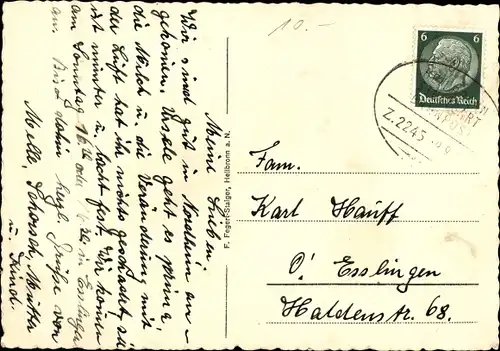 10.-
Meine Lieben
Wir sind gut in Nordheim an-
gekommen. Ursele geht es prima,
die Milch u. die Veränderung mit
der Luft hat ihr nichts geschadet, sie
ist munter u. lacht fest. Wir kommen
am Sonntag in Esslingen
an. Bis dahin herzl. Grüße von
Melle, Mutter
u. Kind.
F. Fegert-Staiger, Heilbronn a. N.
6 6
Deutsches Reich
Z. 2245
Fam.
Karl Hauff
O! Esslingen
Haldenstr. 68.